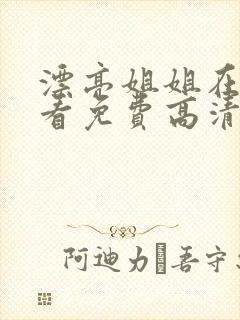 漂亮姐姐在
看免费高清
阿迪力�吾守